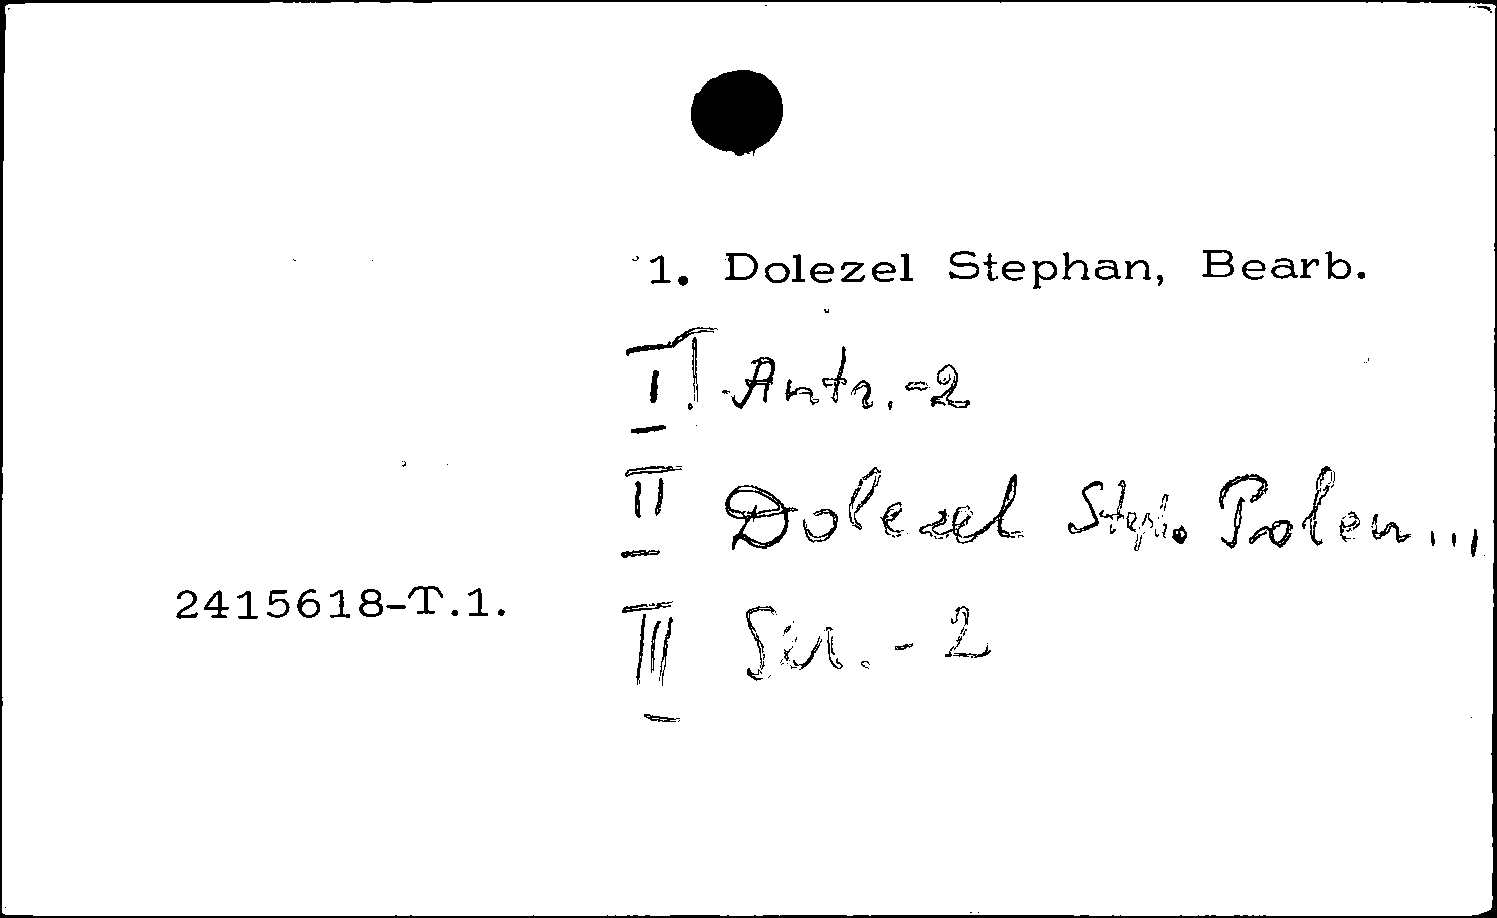 1. Dolezel Stephan, Bearb.
I Antr.-2
II Dolezel Steph. Polen...
2415618-T.1.
III Ser.-2